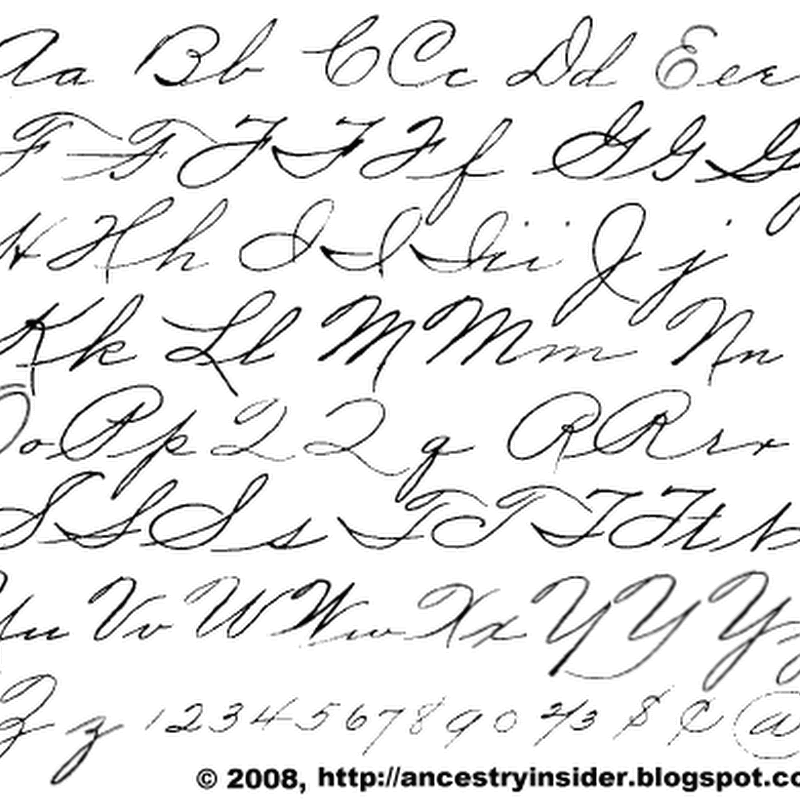 Aa Bb CCc Dd Eee
FFFFFf GGG
HHh IIIii Jj
Kk Ll MMm Nn
OoPp22q RRrr
SSSs TTTTtt
Uu Vv WWw Xx YYY
Zz 1234567890 2/3 $ ¢ @
© 2008, http://ancestryinsider.blogspot.co